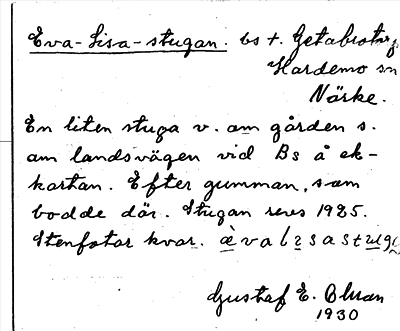 Eva-Lisa-stugan. bs t. Getabrotorp
Hardemo sn
Närke.
En liten stuga v. om gården s.
om landsvägen vid Bs å ek-
kartan. Efter gumman, som
bodde där. Stugan revs 1925.
Stenfotar kvar.
Gustaf E. Ohman
1930